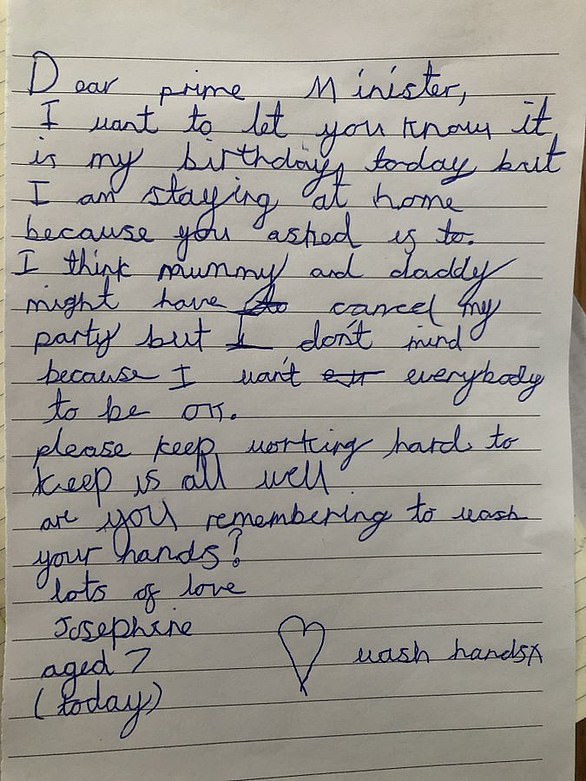 Dear prime Minister,
I want to let you know it
is my birthday today but
I am staying at home
because you asked us to.
I think mummy and daddy
might have to cancel my
party but I don't mind
because I want everybody
to be ok.
please keep working hard to
keep us all well
are you remembering to wash
your hands?
lots of love
Josephine
aged 7
wash hands x
(today)